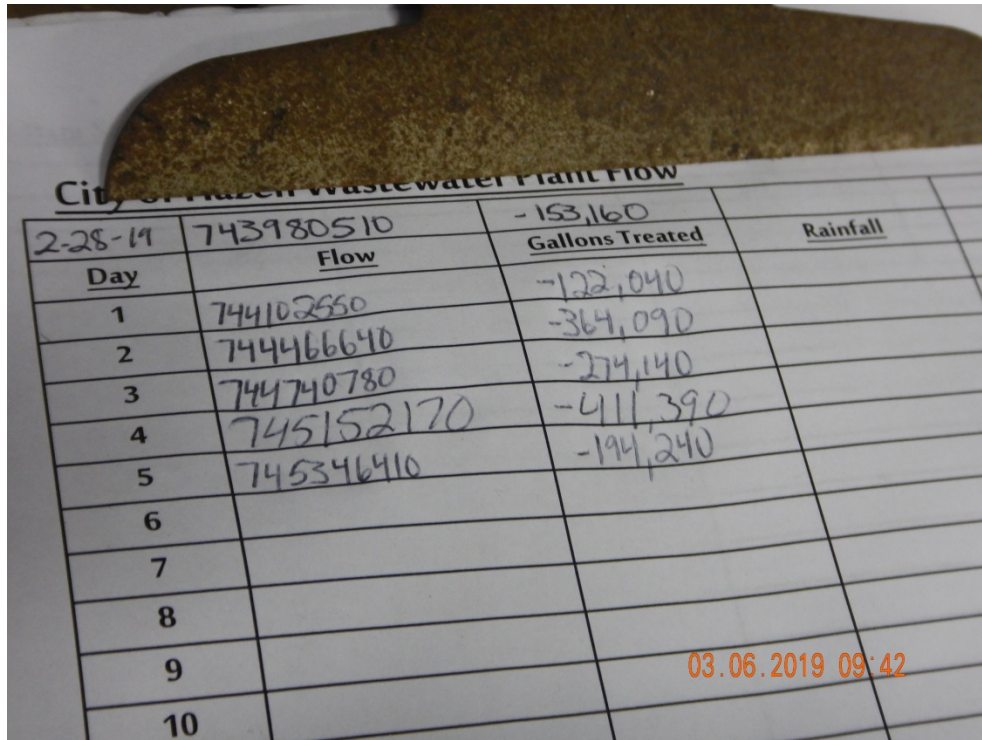 City of Hazen Wastewater Plant Flow
2-28-19 743980510 -153,160
Day Flow Gallons Treated Rainfall
1 744102550 -122,040
2 744466640 -364,090
3 744740780 -274,140
4 745152170 -411,390
5 745346410 -194,240
6
7
8
9
10
03.06.2019 09:42